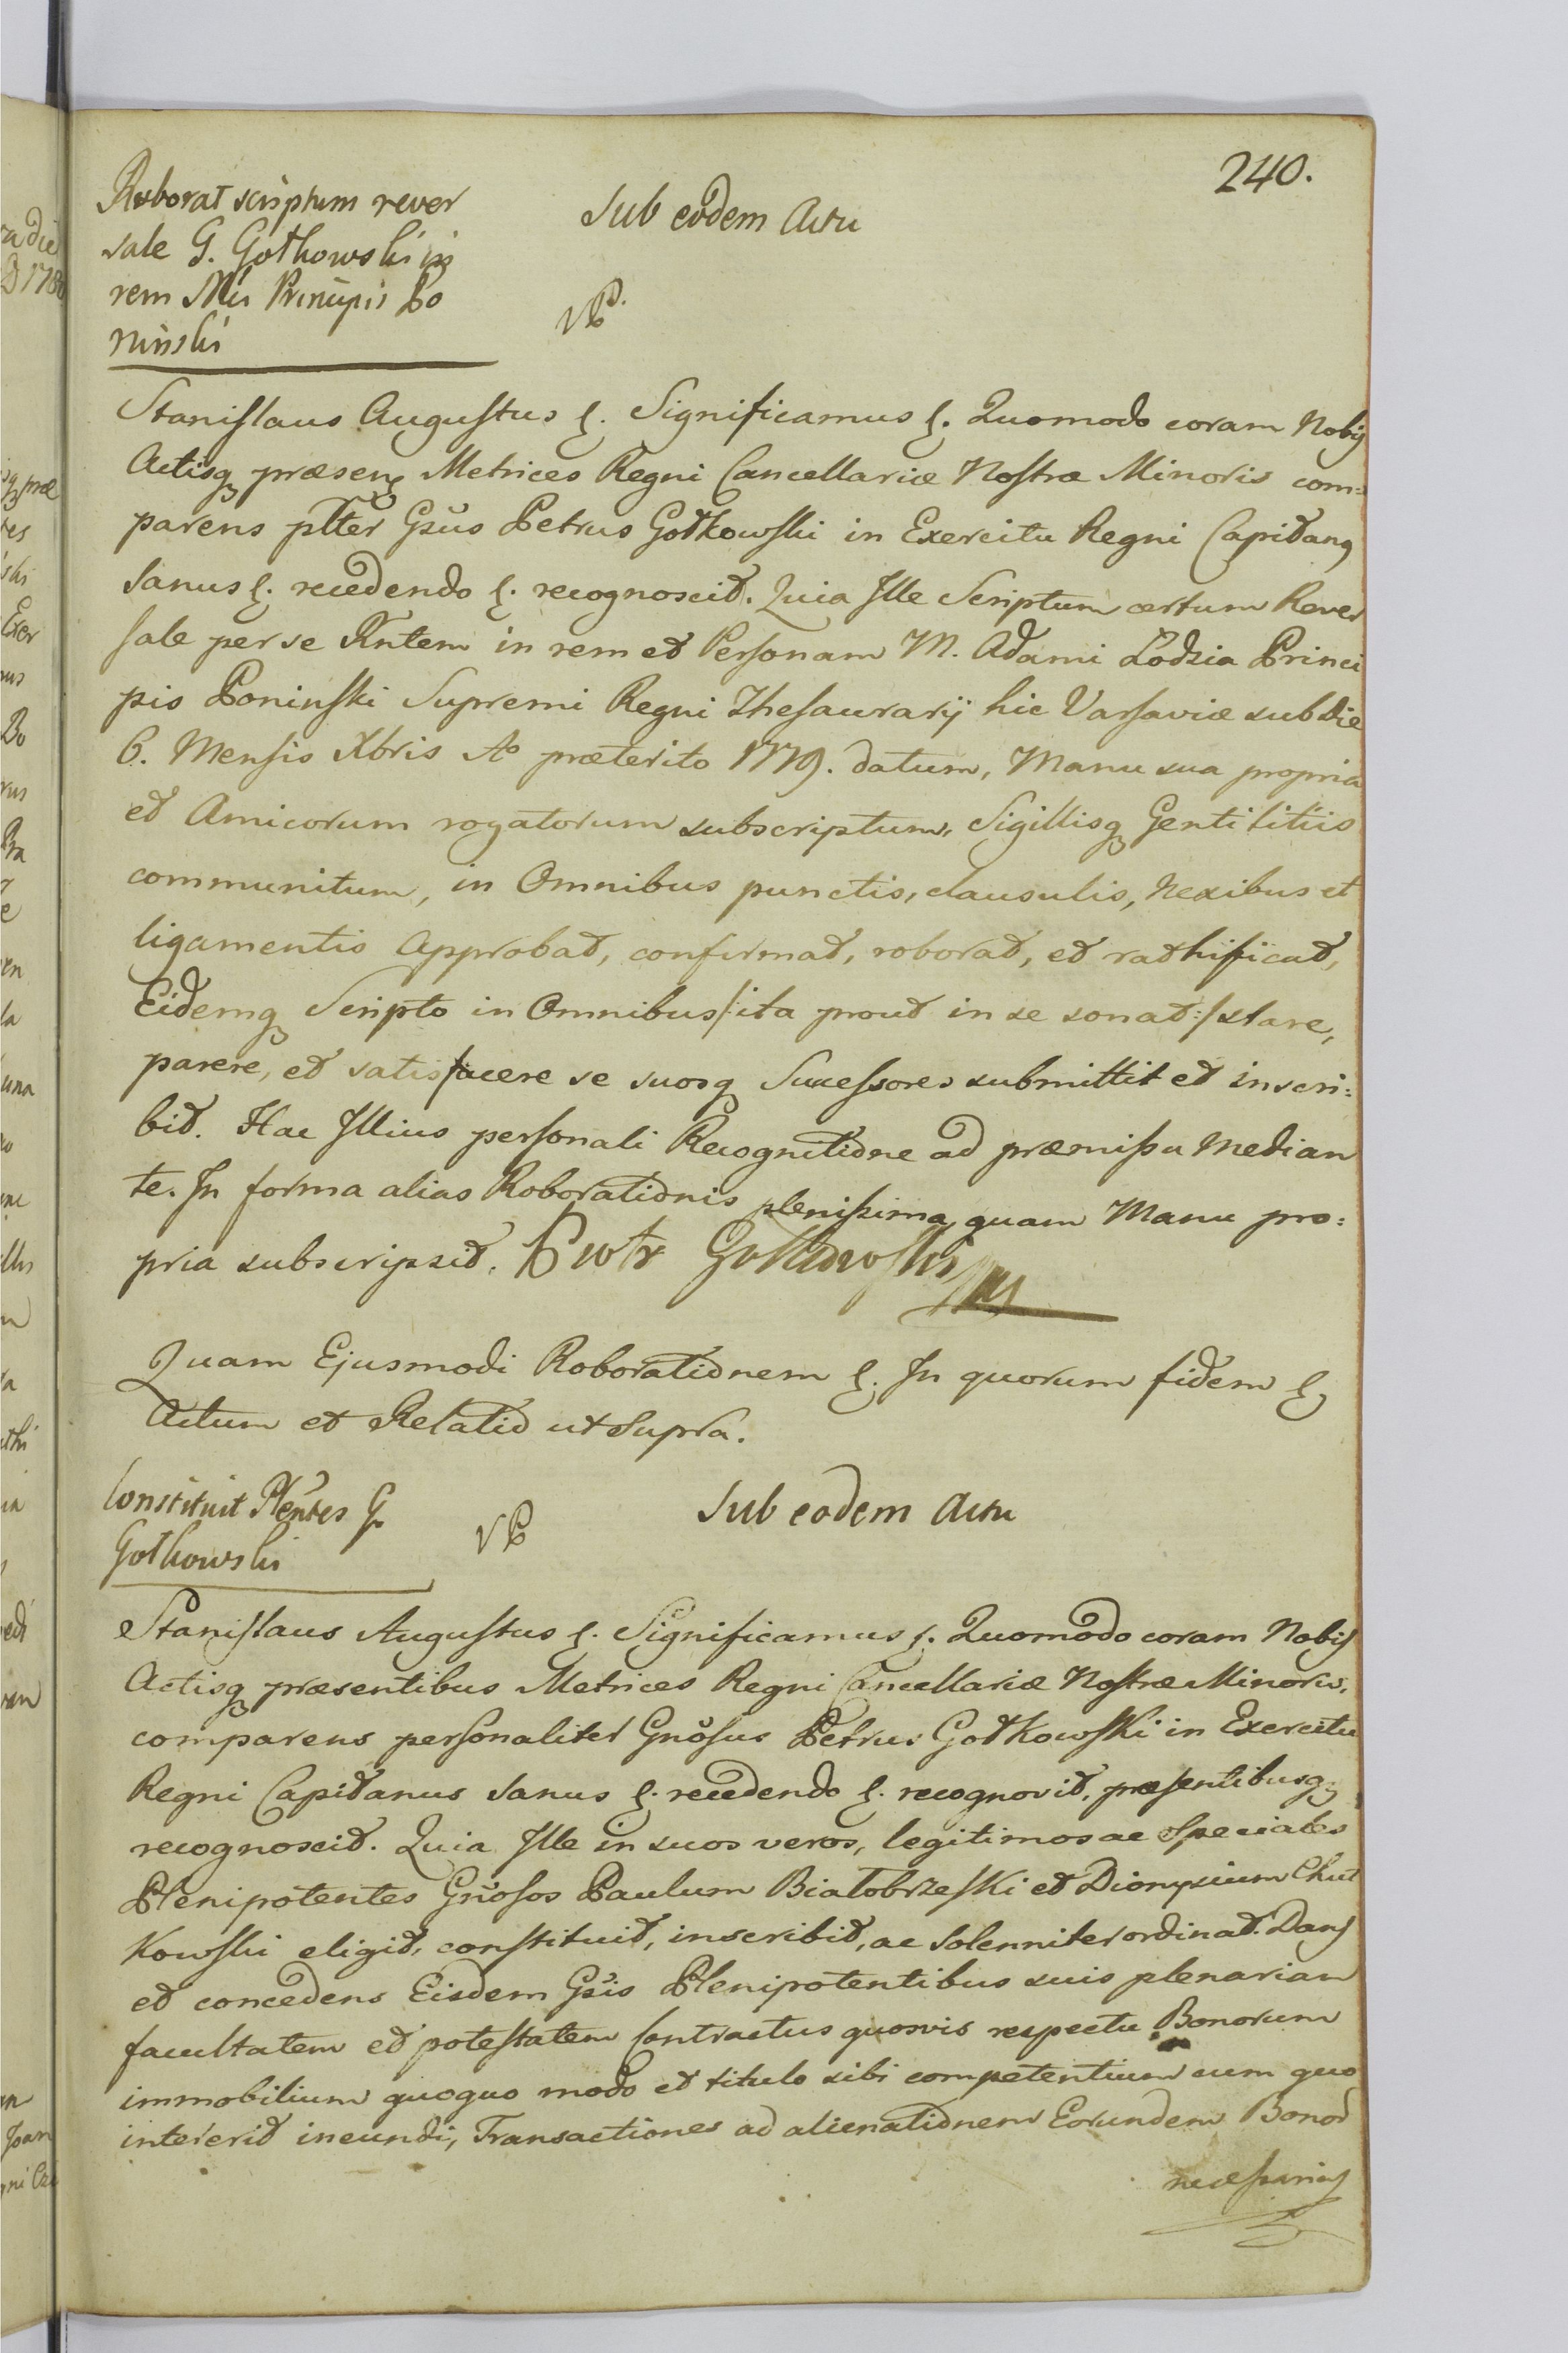 240.
Roborat scriptum rever
sale G. Gotkowski in
rem Mci Principis Po
niński
Sub eodem Actu
VP.
Stanislaus Augustus &. Significamus &. Quomodo coram Nobis
Actisq præsen Metrices Regni Cancellariæ Nostræ Minoris com=
parens plter Gsus Petrus Gotkowski in Exercitu Regni Capitang
Sanus &. recedendo &. recognoscit. Quia Ille Scriptum certum Rever
sale per se Antem in rem et Personam M. Adami Łodzia Princi
pis Poninski Supremi Regni Thesaurarij hic Varsaviæ sub die
6. Mensis Xbris Ao præterito 1779. datum, Manu sua propria
et Amicorum rogatorum subscriptum, Sigillisq Gentilitiis
communitum, in Omnibus punctis, clausulis, Nexibus et
ligamentis Approbat, confirmat, roborat, et rathificat,
Eidemq Scripto in Omnibus /:ita prout in se sonat:/ stare,
parere, et satisfacere se suosq Successores submittit et inscri=
bit. Hac Illius personali Recognitione ad præmissa Median
te. In forma alias Roborationis plenissima, quam Manu pro=
pria subscripsit. Piotr Gotkowski
Quam Ejusmodi Roborationem &. In quorum fidem &
Actum et Relatio ut Supra.
Constituit Plentes G.
Gotkowski
VP
Sub eodem Actu
Stanislaus Augustus &. Significamus &. Quomodo coram Nobis
Actisq præsentibus Metrices Regni Cancellariæ Nostræ Minoris,
comparens personaliter Gnosus Petrus Gotkowski in Exercitu
Regni Capitanus Sanus &. recedendo &. recognovit, præsentibusq
recognoscit. Quia Ille in suos veros, legitimos ac Speciales
Plenipotentes Gnosos Paulum Białobrzeski et Dionysium Chut
Kowski eligit, constituit, inscribit, ac Solenniter ordinat. Dans
et concedens Eisdem Gsis Plenipotentibus suis plenariam
facultatem et potestatem Contractus quosvis respectu Bonorum
immobilium quoquo modo et titulo sibi competentium cum quo
intererit ineundi, Transactiones ad alienationem Eorundem Bonor
necessarias